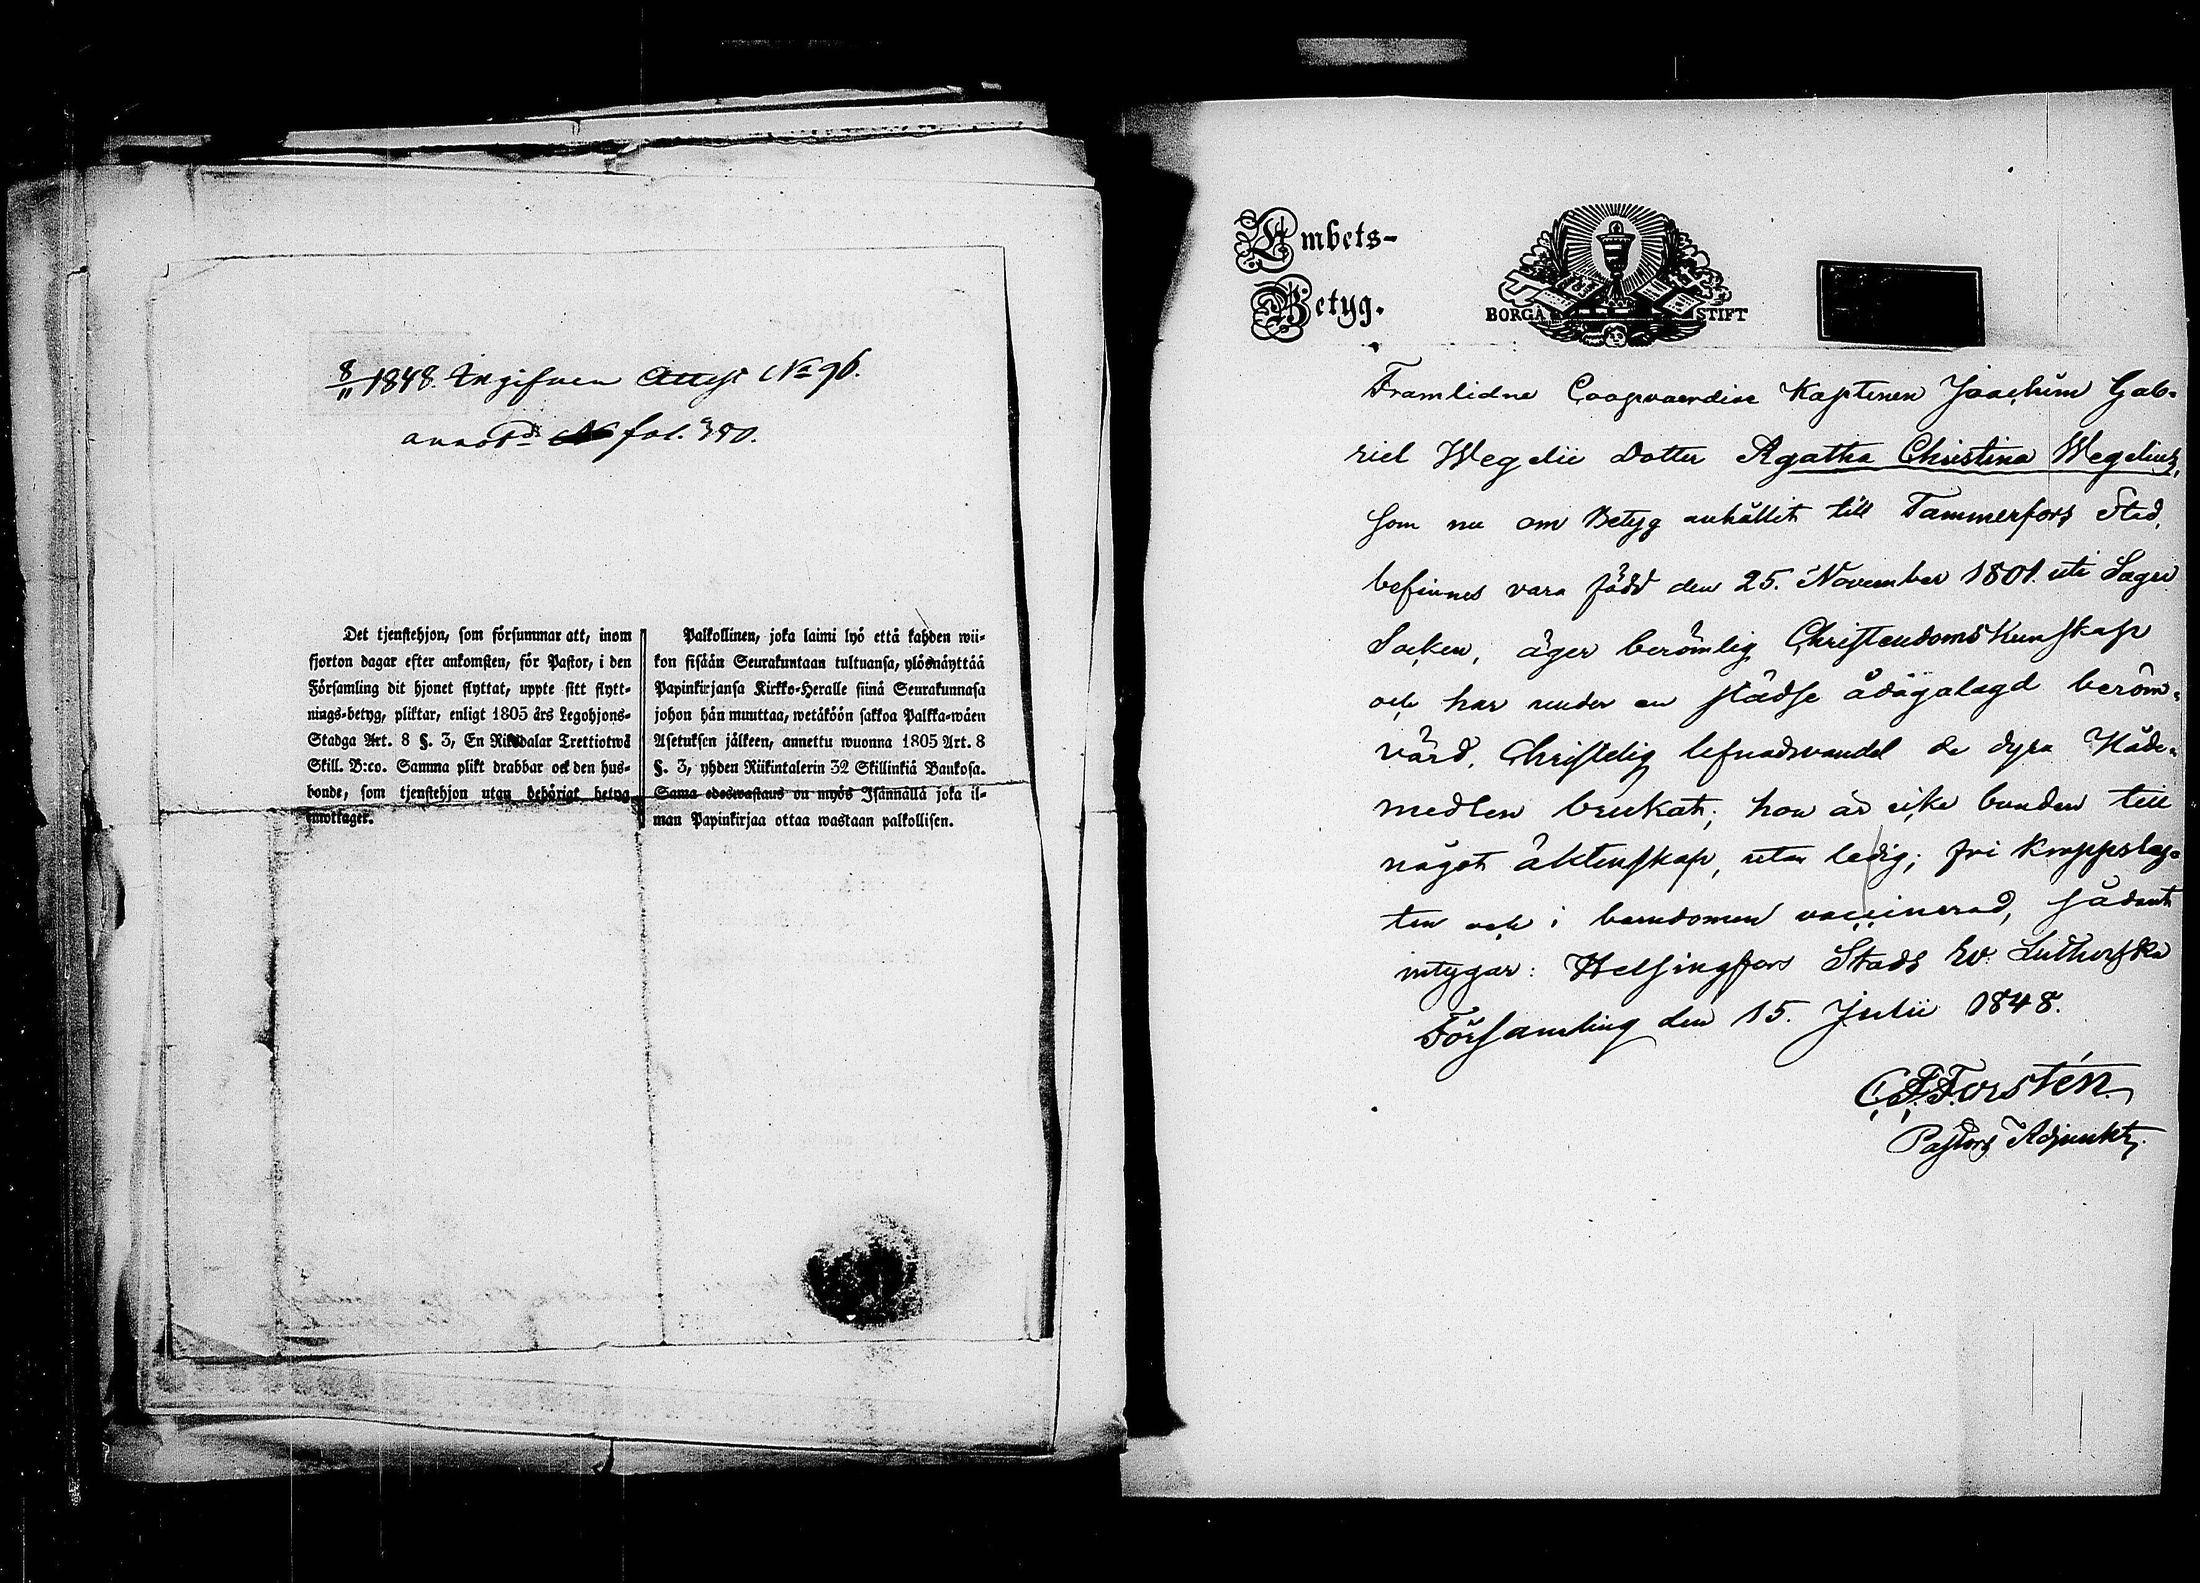 8/11 1848. Ingifven Attest No 96.
annot:d fol. 390.
Det tjenstehjon, som försummar att, inom
fjorton dagar efter ankomsten, för Pastor, i den
Församling dit hjonet flyttat, uppte sitt flytt-
nings-betyg, pliktar, enligt 1805 års Legohjons-
Stadga Art. 8 §. 3, En Riksdalar Trettiotwå
Skill. B:co. Samma plikt drabbar ock den hus-
bonde, som tjenstehjon utan behörigt betyg
emottager.
Palkollinen, joka laimi lyö että kahden wii-
kon sisään Seurakuntaan tultuansa, ylösnäyttää
Papinkirjansa Kirkko-Heralle siinä Seurakunnasa
johon hän muuttaa, wetäköön sakkoa Palkka-wäen
Asetuksen jälkeen, annettu wuonna 1805 Art. 8
§. 3, yhden Riikintalerin 32 Skillinkiä Baukosa.
Sama edeswastaus on myös Isännällä joka il-
man Papinkirjaa ottaa wastaan palkollisen.
Embets-
Betyg.
BORGÅ STIFT
Framlidne Coopvaerdise Kaptenen Joachim Gab-
riel Wegelii dotter Agatha Christina Wegelius,
som nu om Betyg anhållit till Tammerfors Stad,
befinnes vara född den 25. November 1801. uti Sagu
Socken, äger berömlig Christendoms Kunskap
och har under en städse ådagalagd beröm-
värd, Christelig lefnadsvandel de dyra Nåde-
medlen brukat; hon är icke bunden till
något äktenskap, utan ledig; fri koppslag-
ten och i barndomen vaccinerad, sådant
intygar: Helsingfors Stads Ev. Lutherska
Församling den 15. Julii 1848.
C. F. Forstén.
Pastors Adjunkt.